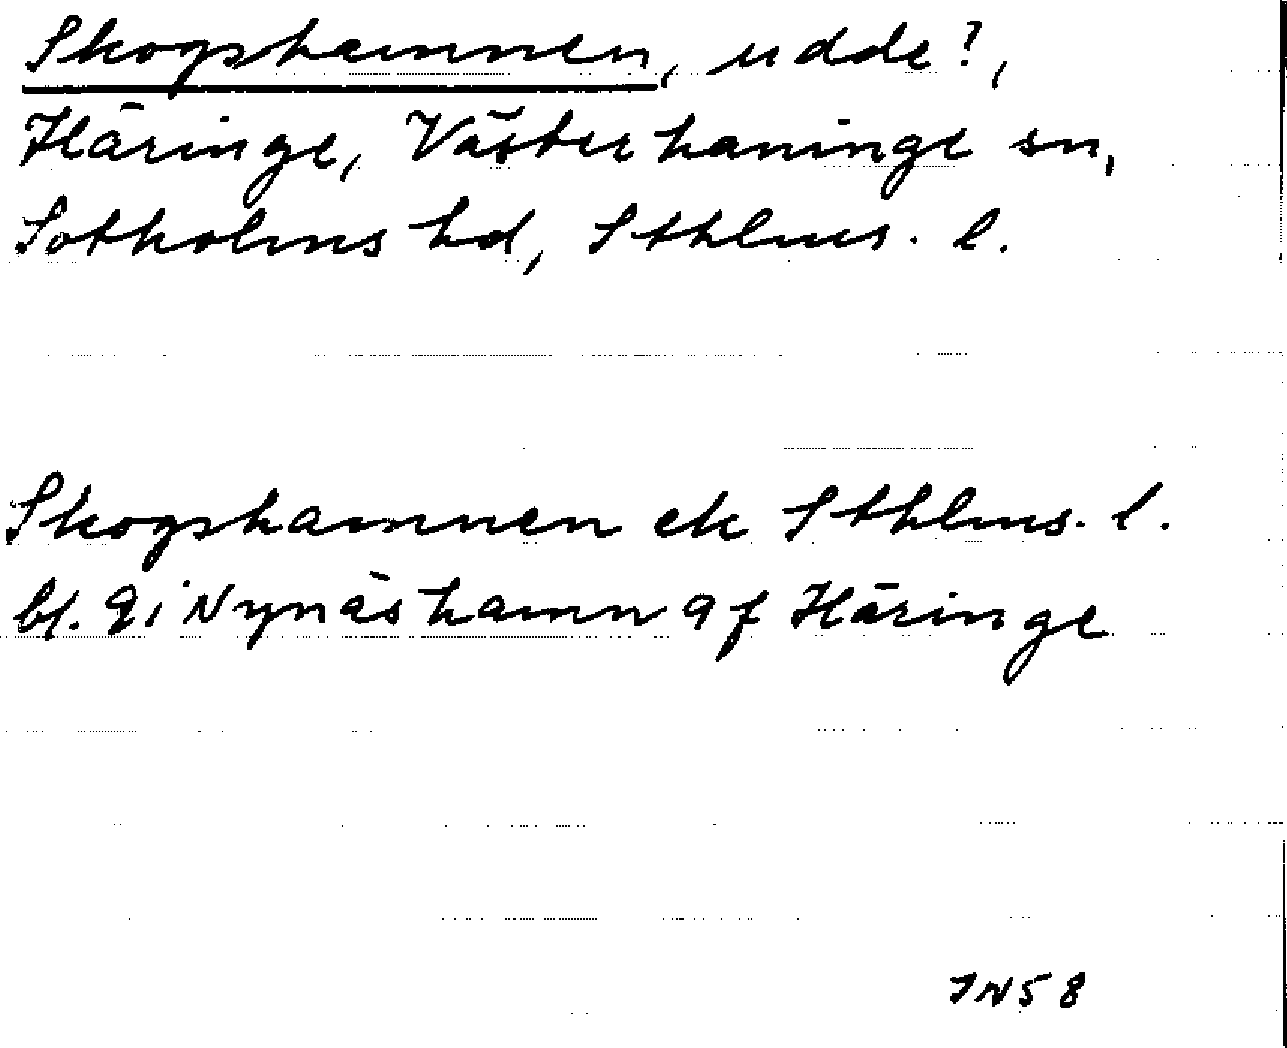 Skogshamnen, udde?,
Häringe, Västerhaninge sn,
Sotholms hd, Sthlms. l.
Skogshamnen ek Sthlms. l.
bl. 9 i Nynäshamn af Häringe
JN58